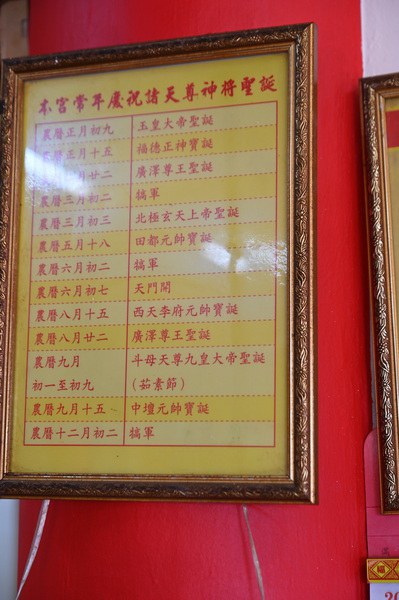 本宮常年慶祝諸天尊神将聖誕
農曆正月初九 玉皇大帝聖誕
農曆正月十五 福德正神寶誕
月廿二 廣澤尊王聖誕
農曆三月初二 犒軍
農曆三月初三 北極玄天上帝聖誕
農曆五月十八 田都元帥寶誕
農曆六月初二 犒軍
農曆六月初七 天門開
農曆八月十五 西天李府元帥寶誕
農曆八月廿二 廣澤尊王聖誕
農曆九月 斗母天尊九皇大帝聖誕
初一至初九 (茹素節)
農曆九月十五 中壇元帥寶誕
農曆十二月初二 犒軍